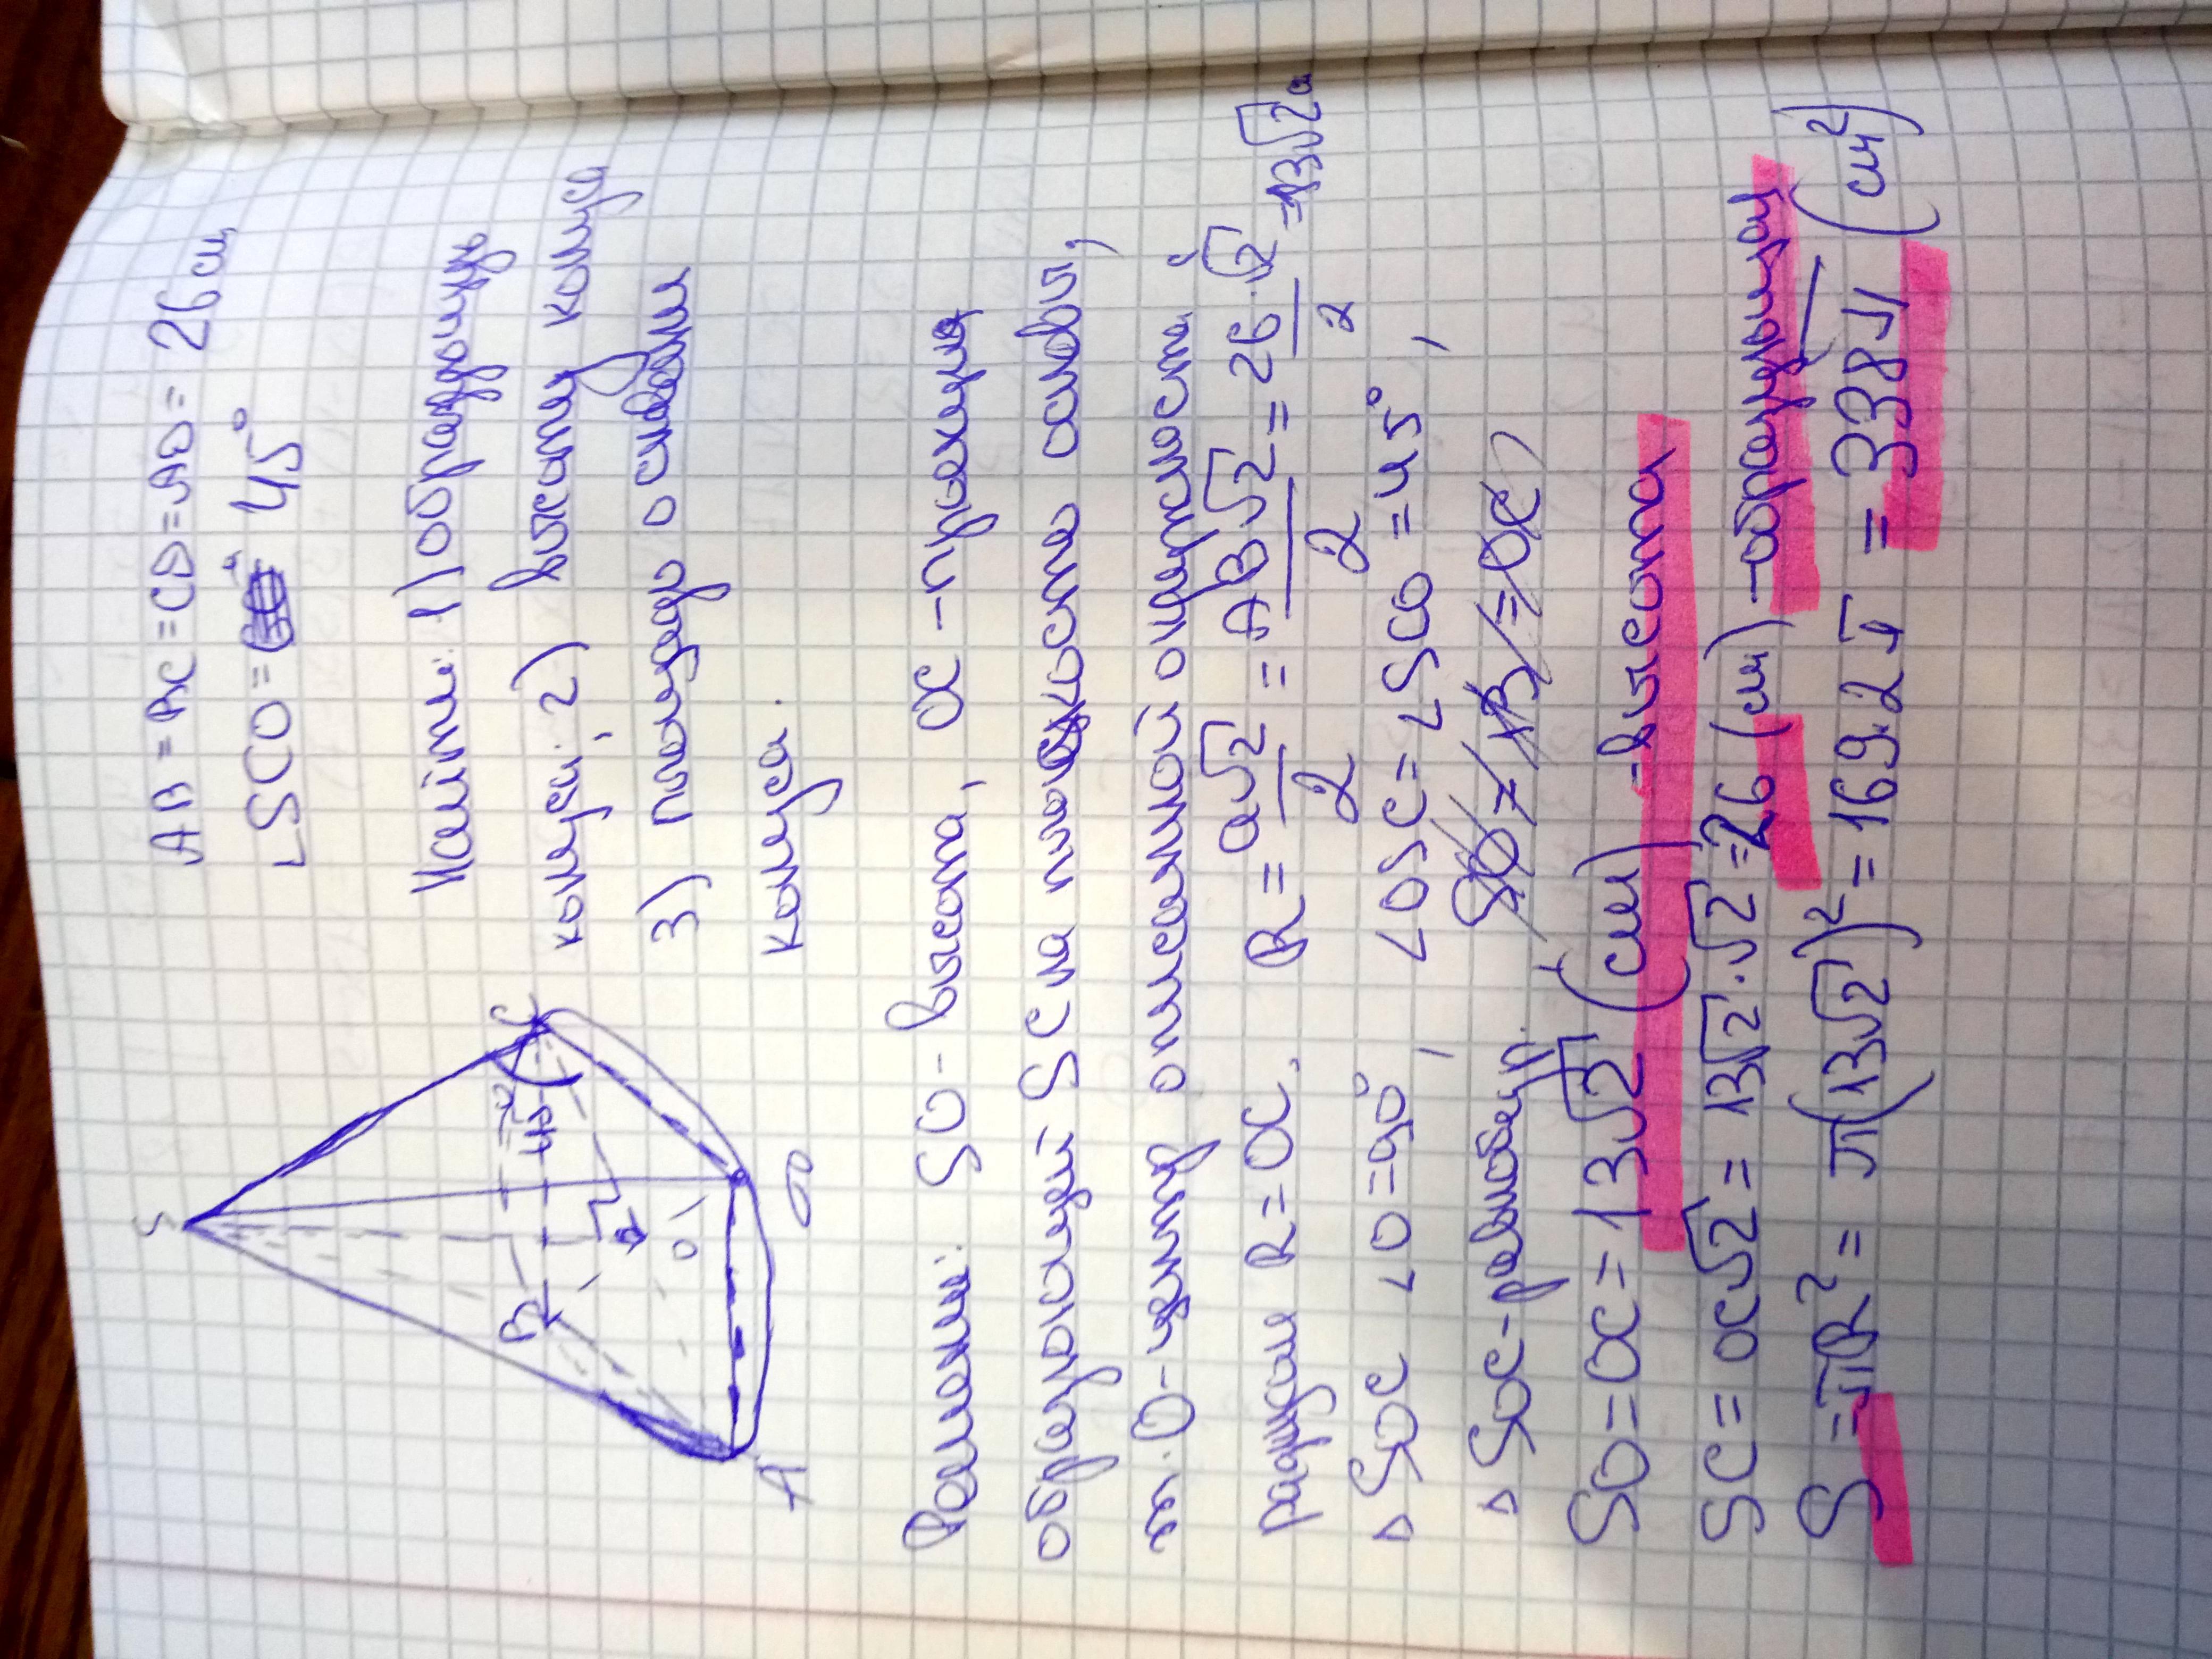 AB = BC = CD = AD = 26 см,
∠SCO = 45°
Найти: 1) образующую
конуса; 2) высоту конуса
3) площадь основания
конуса.
S
B
C
45°
O
A
D
Решение: SO - высота, OC - проекция
образующей SC на плоскость основ.,
т. O - центр описанной окружности с
радиусом R = OC. R = a√2/2 = AB√2/2 = 26·√2/2 = 13√2 см
△SOC ∠O = 90°, ∠OSC = ∠SCO = 45°,
△SOC - равнобедр.
SO = OC = 13√2 (см) - высота
SC = OC√2 = 13√2·√2 = 26 (см) - образующая
S = πR² = π(13√2)² = 169·2π = 338π (см²)